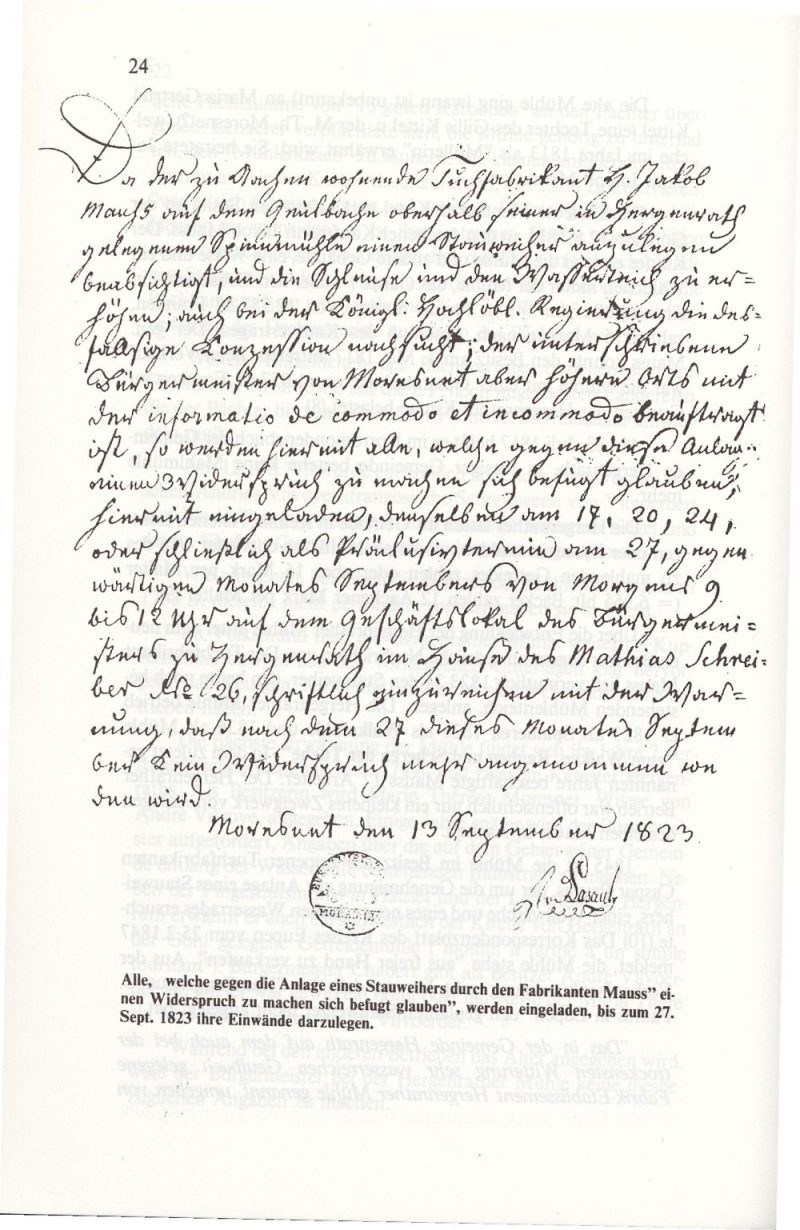 24
Da der zu Aachen wohnende Tuchfabrikant H. Jakob
Mauss auf dem Geulbache oberhalb seiner in Hergenrath
gelegenen Spinnmühle einen Stauweiher anzulegen
beabsichtigt, und die Schleuse und den Wasserteich zu er=
höhen; auch bei der Königl: Hochlöbl. Regierung die des=
fallsige Konzession nachsucht; der unterschriebene
Bürgermeister von Moresnet aber höhern Orts mit
der informatio de commodo et incommodo beauftragt
ist, so werden hiermit alle, welche gegen diese
einen Widerspruch zu machen sich befugt glauben,
hiermit eingeladen, denselben am 17, 20, 24,
oder schließlich als am 27, gegen
wärtigen Monates Septembers von Morgens 9
bis 12 Uhr auf dem Geschäftslokal des Bürgermei=
sters zu Hergenrath im Hause des Mathias Schrei=
ber No 26, schriftlich einzureichen mit der War=
nung, daß nach dem 27 dieses Monates Septem
ber kein Widerspruch mehr angenommen we
den wird.
Moresnet den 13 September 1823
Alle, welche gegen die Anlage eines Stauweihers durch den Fabrikanten Mauss” ei-
nen Widerspruch zu machen sich befugt glauben”, werden eingeladen, bis zum 27.
Sept. 1823 ihre Einwände darzulegen.